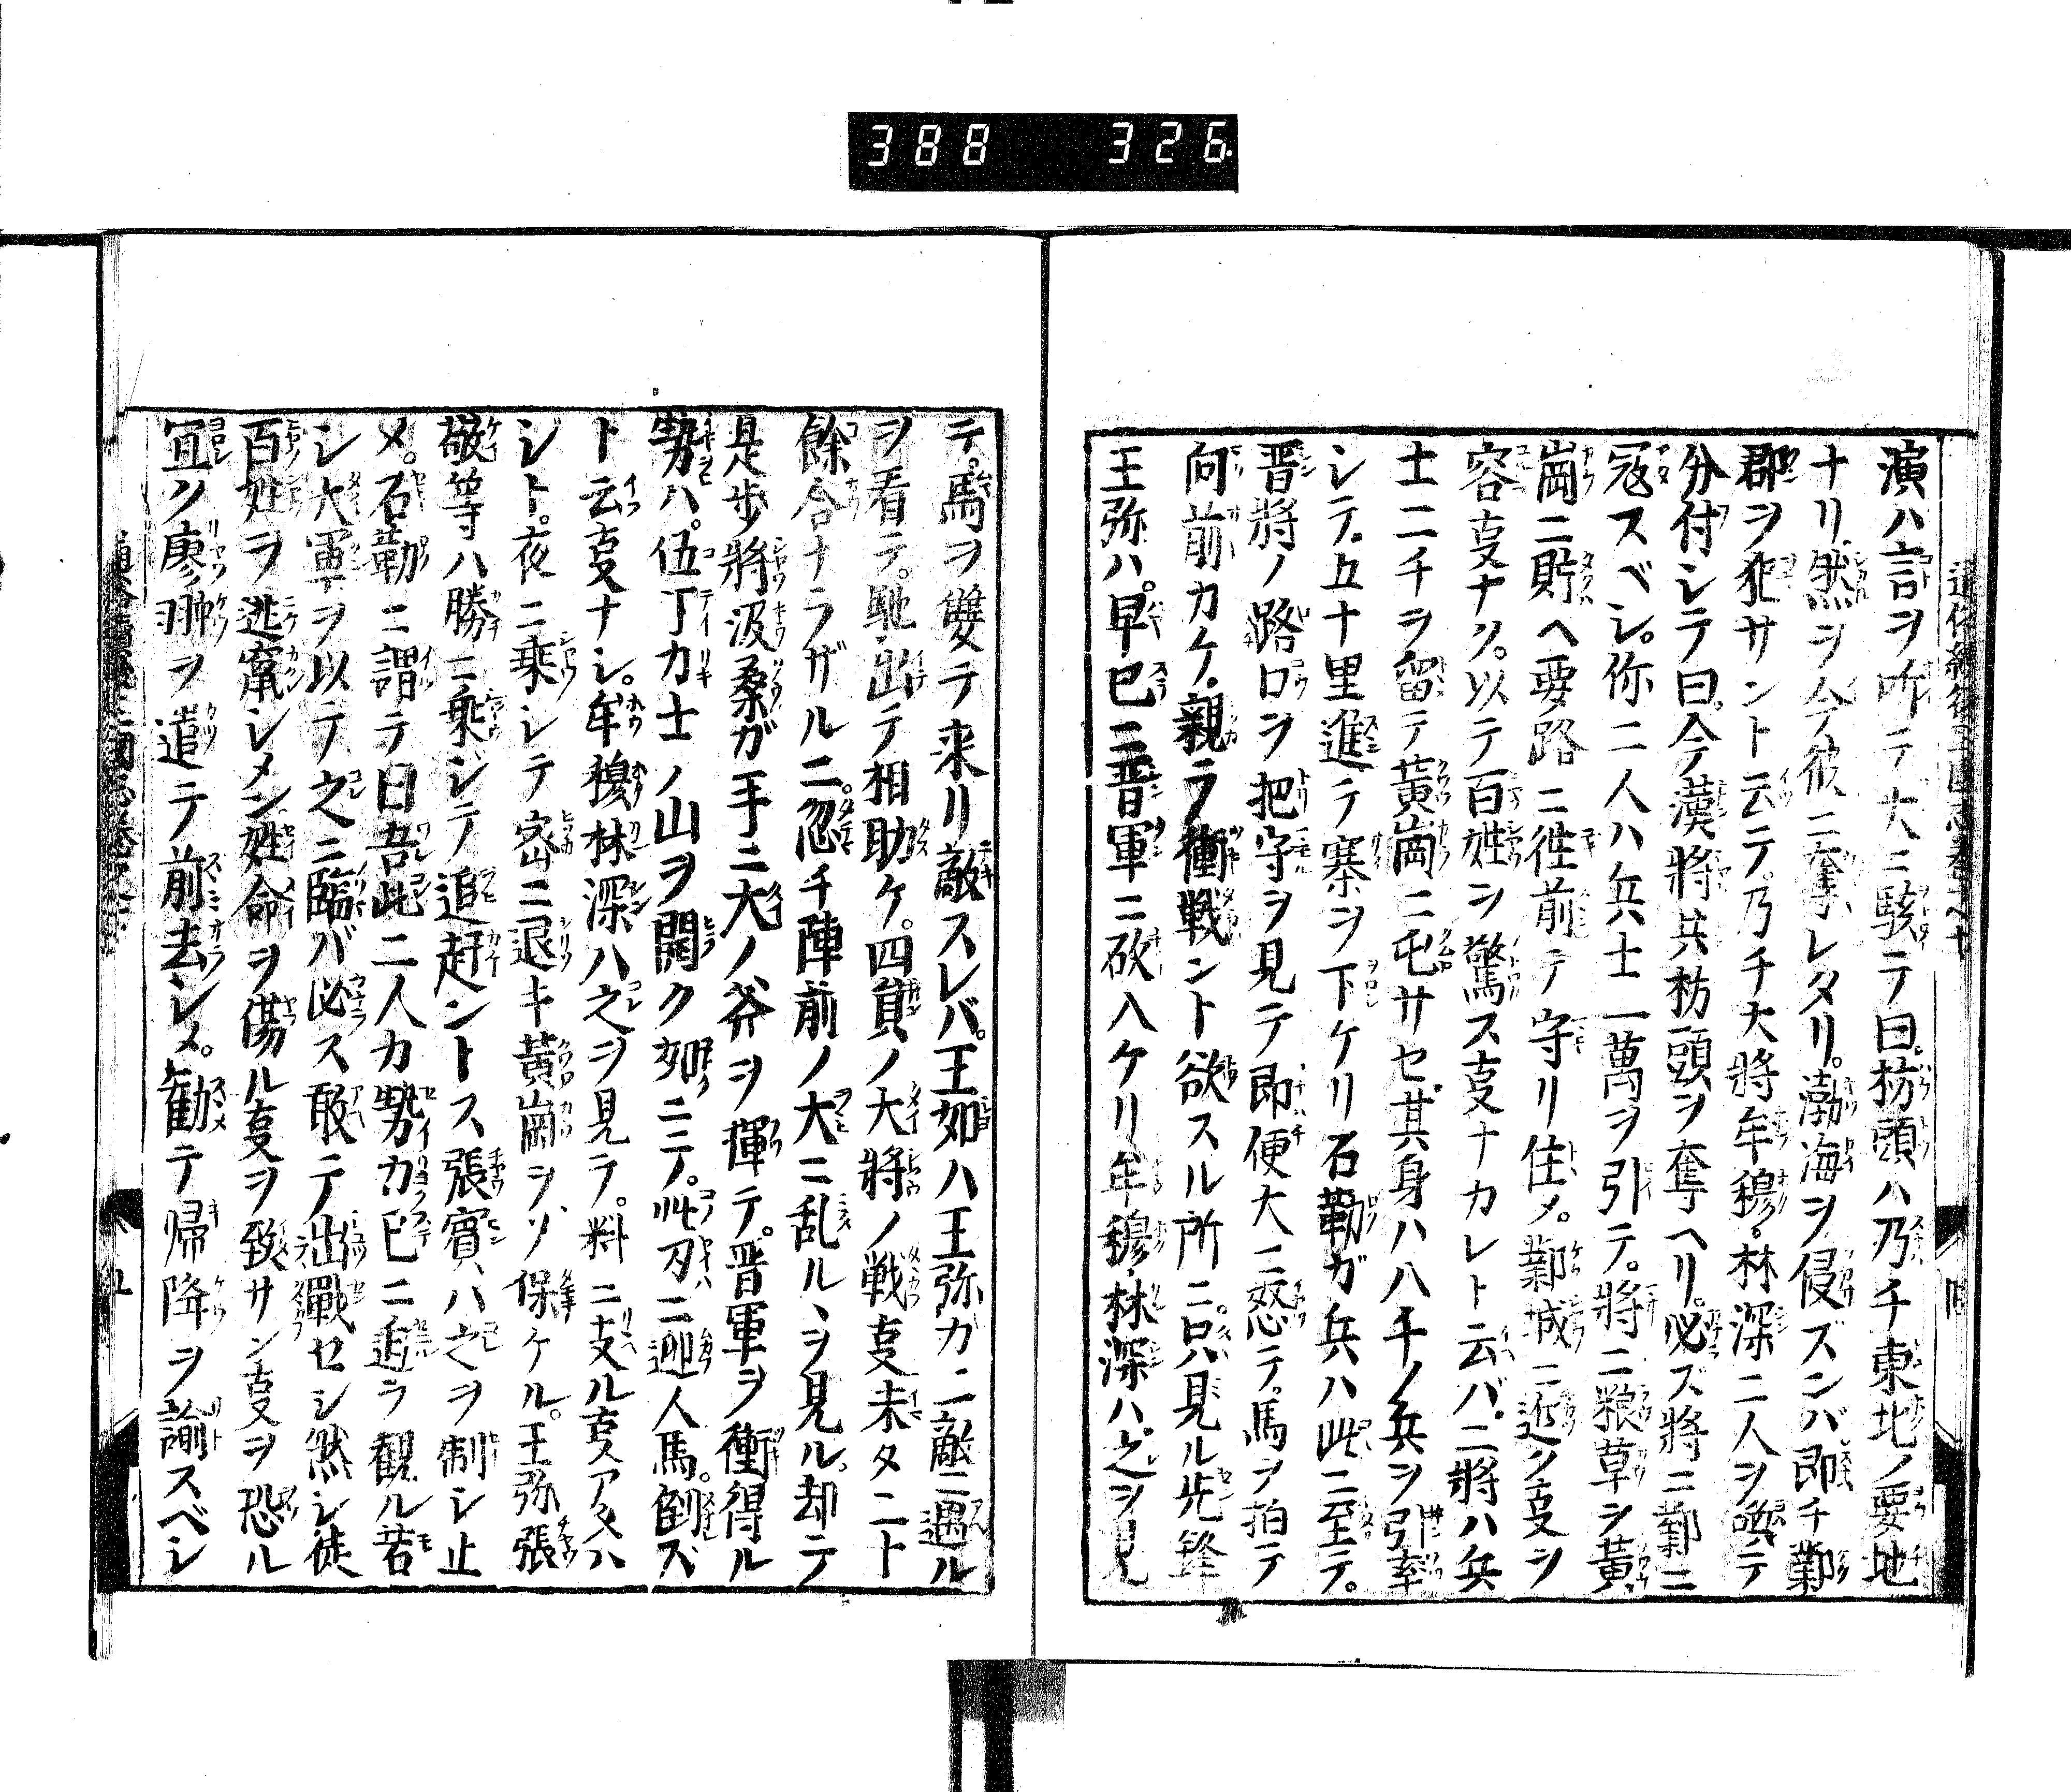 388 326
演ハ言ヲ听テ大ニ駭テ曰枋頭ハ乃チ東北ノ要地
ナリ然ヲ今彼ニ奪レタリ渤海ヲ侵ズンバ即チ鄴
郡ヲ犯サント云テ乃チ大將牟穆林深二人ヲ喚テ
分付シテ曰今漢將共枋頭ヲ奪ヘリ必ズ將ニ鄴ニ
冦スベシ你二人ハ兵士一萬ヲ引テ將ニ粮草シ黄
崗ニ貯ヘ要路ニ徃前テ守リ住メ鄴城ニ近ク亊シ
容亊ナク以テ百姓シ驚ス亊ナカレト云バ二將ハ兵
士二千ヲ留テ黄崗ニ屯サセ其身ハ八千ノ兵ヲ引率
シテ五十里進テ寨ヲ下ケリ石勒ガ兵ハ此ニ至テ
晋將ノ路口ヲ把守ヲ見テ即便大ニ怒テ馬ヲ拍テ
向前カケ親ラ衝戰ント欲スル所ニ只見ル先鋒
王弥ハ早巳ニ晋軍ニ砍入ケリ牟穆林深ハ之ヲ見
テ馬ヲ雙テ来リ敵スレバ王如ハ王弥カ二敵ニ遇ル
ヲ看テ馳出テ相助ケ四貟ノ大將ノ戰亊未タ二ト
餘合ナラザルニ忽チ陣前ノ大ニ乱ルヽヲ見ル却テ
是歩將汲桑ガ手ニ大ノ斧ヲ揮テ晋軍ヲ衝得ル
勢ハ伍丁力士ノ山ヲ開ク如ニテ此刃ニ迎人馬倒ズ
ト云亊ナシ牟穆林深ハ之ヲ見テ料ニ支ル亊アタハ
ジト夜ニ乘シテ密ニ退キ黄崗ヲソ保ケル王弥張
敬等ハ勝ニ乘ジテ追赶ントス張賓ハ之ヲ制シ止
メ石勒ニ謂テ曰吾此二人カ勢力巳ニ追ラ観ル若
シ大軍ヲ以テ之ニ臨バ必ス敢テ出戰セシ然シ徒
百姓ヲ逃竄シメン姓命ヲ傷ル亊ヲ致サン亊ヲ恐ル
宜ク廖翀ヲ遣テ前去シメ勸テ帰降ヲ諭スベシ